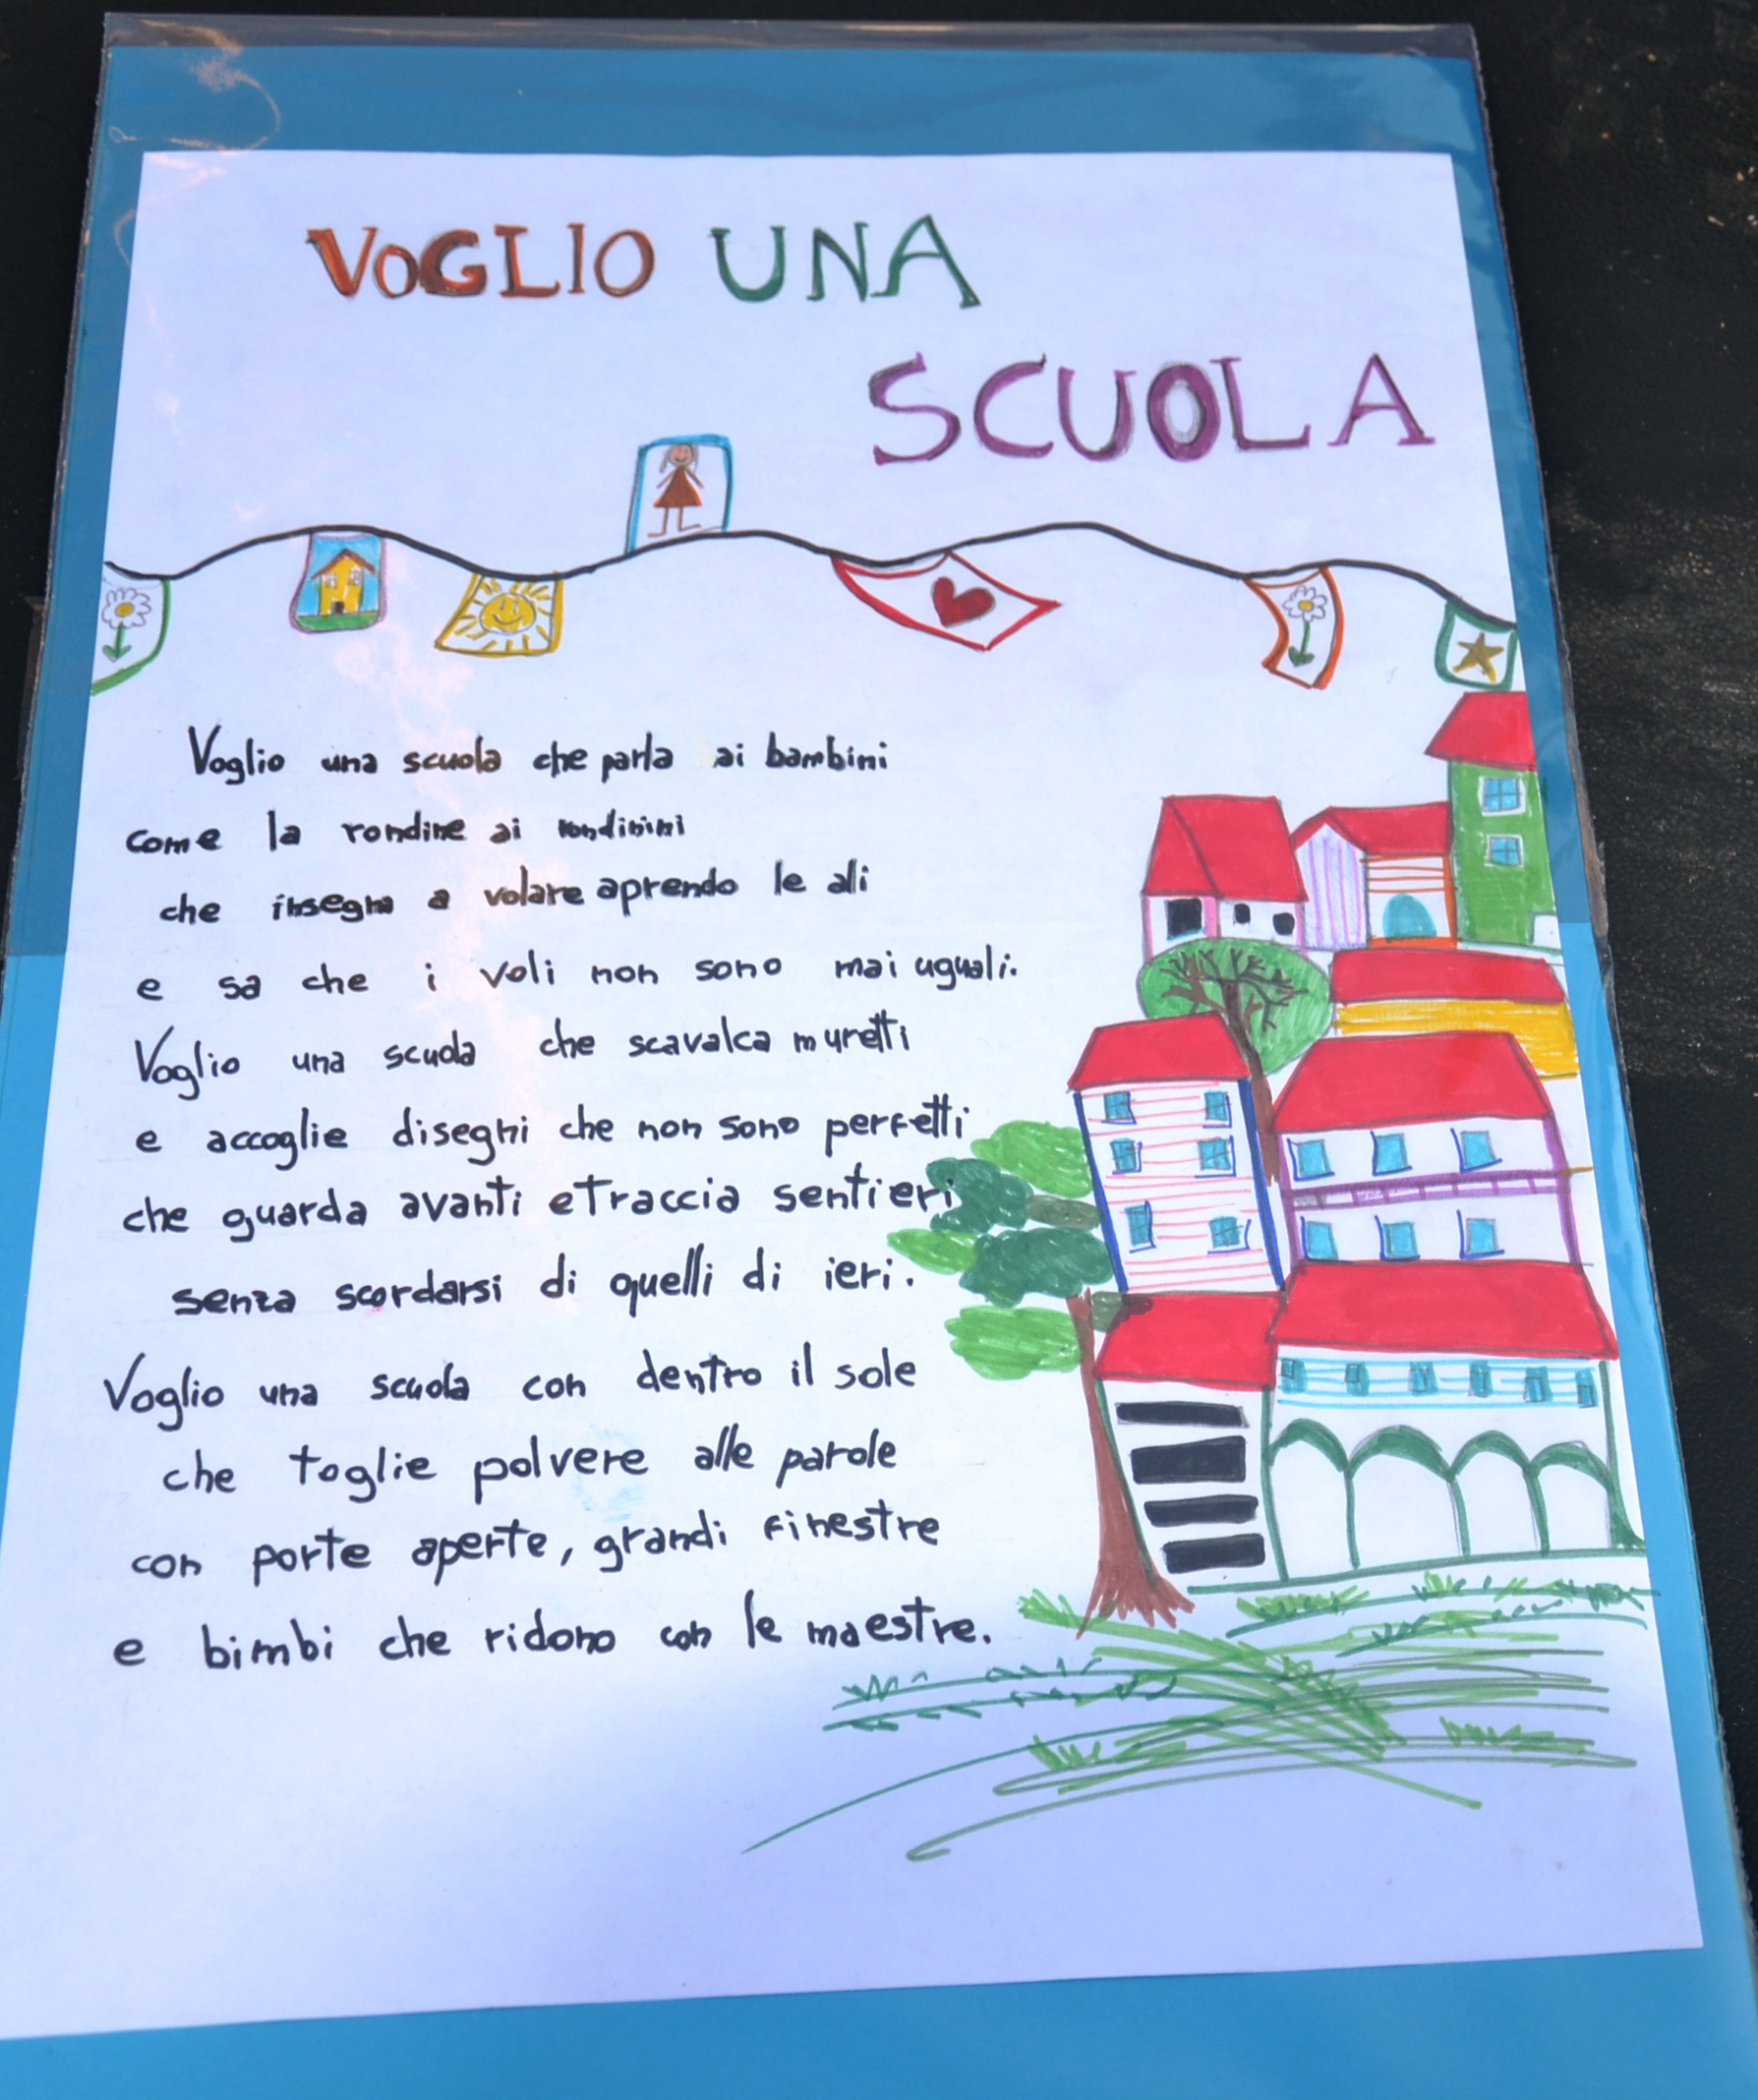 VOGLIO UNA
SCUOLA
Voglio una scuola che parla ai bambini
come la rondine ai rondinini
che insegna a volare aprendo le ali
e sa che i voli non sono mai uguali.
Voglio una scuola che scavalca muretti
e accoglie disegni che non sono perfetti
che guarda avanti e traccia sentieri
senza scordarsi di quelli di ieri.
Voglio una scuola con dentro il sole
che toglie polvere alle parole
con porte aperte, grandi finestre
e bimbi che ridono con le maestre.